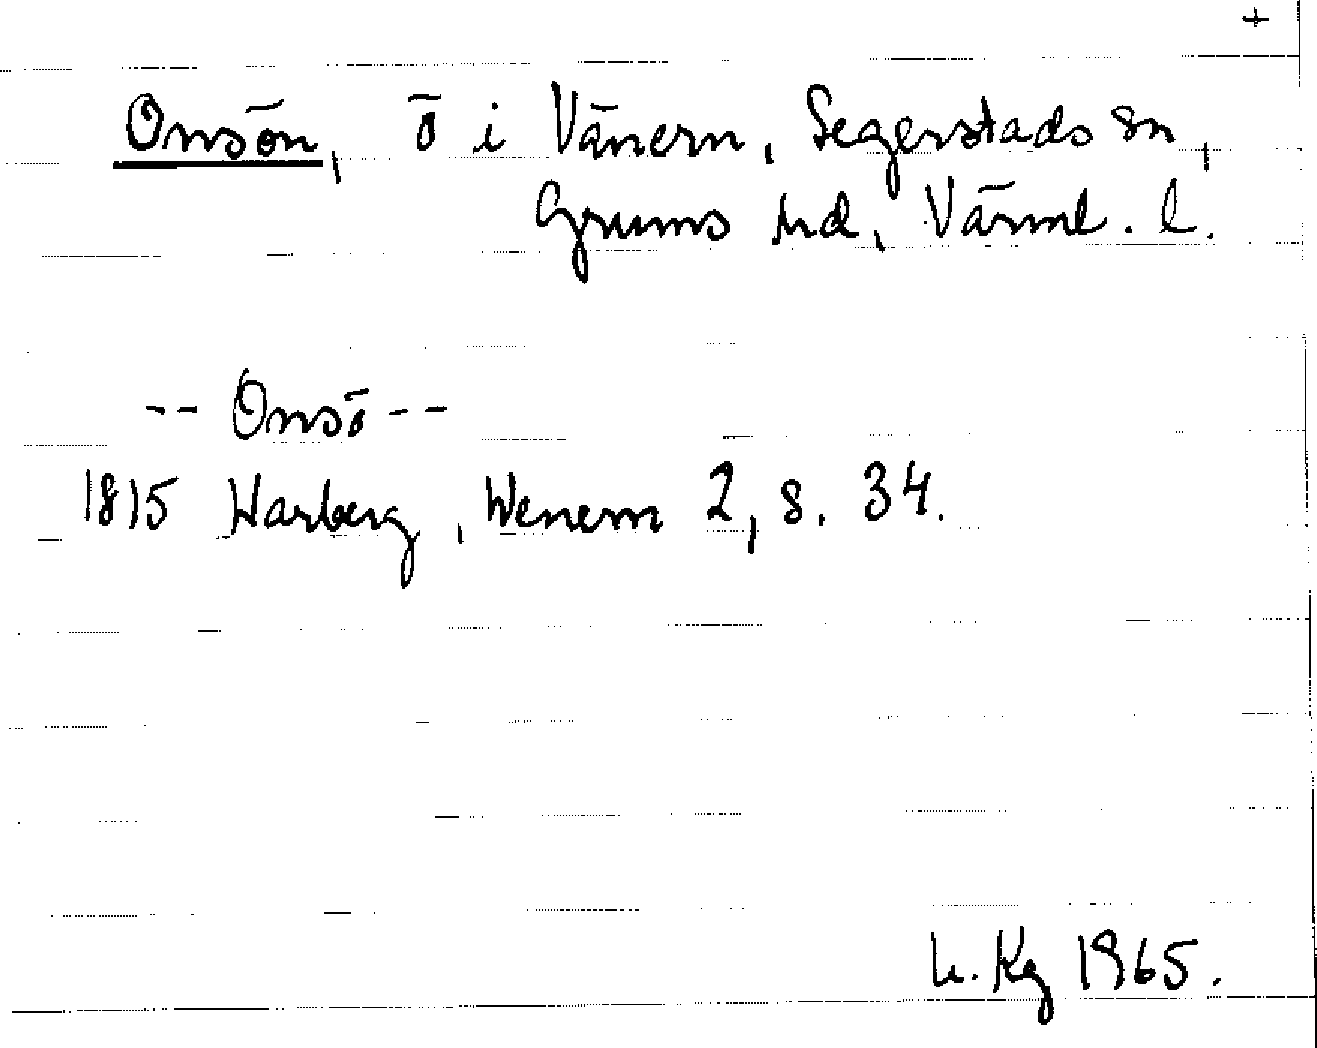 +
Onsön, ö i Vänern, Segerstads sn,
Grums hd, Värml. l.
-- Onsö --
1815 Warberg, Wenern 2, s. 34.
h. Kg 1965.